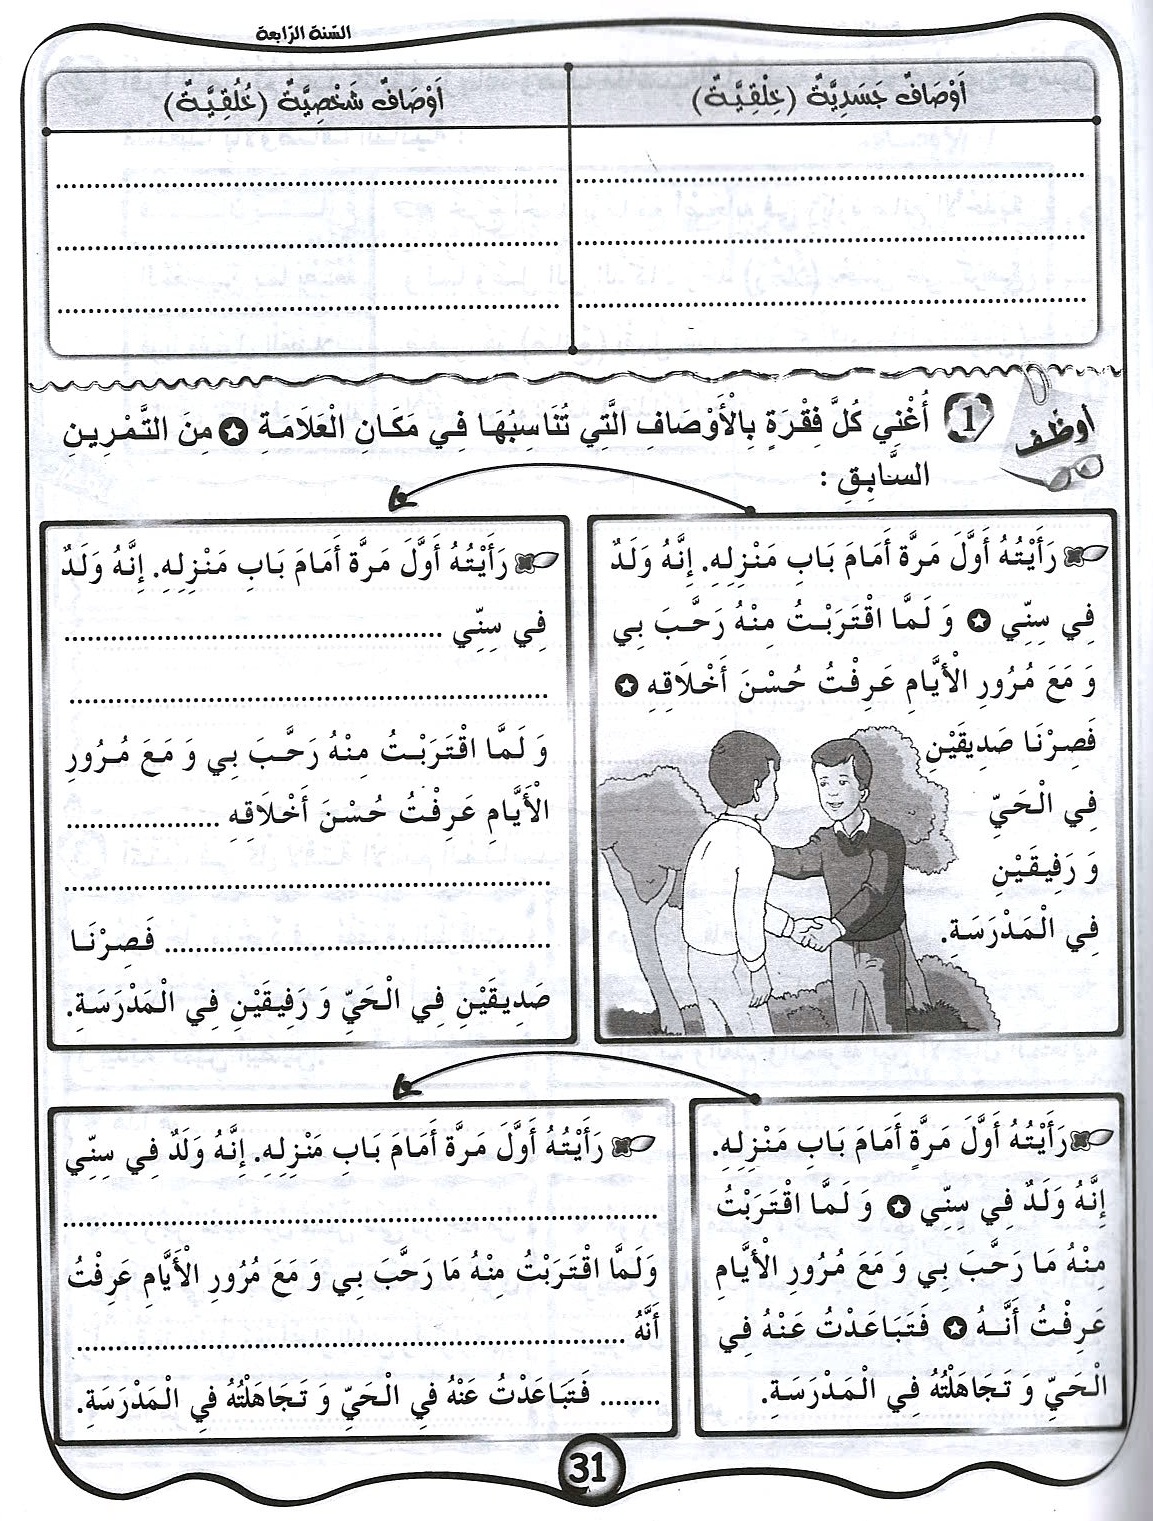 السّنة الرّابعة
أَوْصَافٌ جَسَدِيَّةٌ (خِلْقِيَّةٌ)
أَوْصَافٌ شَخْصِيَّةٌ (خُلُقِيَّةٌ)
أوظّف
1 أُغْنِي كُلَّ فِقْرَةٍ بِالْأَوْصَافِ الَّتِي تُنَاسِبُهَا فِي مَكَانِ الْعَلَامَةِ ✪ مِنَ التَّمْرِينِ
السَّابِقِ :
رَأَيْتُهُ أَوَّلَ مَرَّة أَمَامَ بَابِ مَنْزِلِهِ. إِنَّهُ وَلَدٌ
فِي سِنِّي ✪ وَ لَمَّا اقْتَرَبْتُ مِنْهُ رَحَّبَ بِي
وَ مَعَ مُرُورِ الْأيَّامِ عَرِفْتُ حُسْنَ أَخْلَاقِهِ ✪
فَصِرْنَا صَدِيقَيْنِ
فِي الْحَيِّ
وَ رَفِيقَيْنِ
فِي الْمَدْرَسَةِ.
رَأَيْتُهُ أَوَّلَ مَرَّة أَمَامَ بَابِ مَنْزِلِهِ. إِنَّهُ وَلَدٌ
فِي سِنِّي ........................................
........................................
وَ لَمَّا اقْتَرَبْتُ مِنْهُ رَحَّبَ بِي وَ مَعَ مُرُورِ
الْأَيَّامِ عَرِفْتُ حُسْنَ أَخْلَاقِهِ ....................
........................................
........................................ فَصِرْنَا
صَدِيقَيْنِ فِي الْحَيِّ وَ رَفِيقَيْنِ فِي الْمَدْرَسَةِ.
رَأَيْتُهُ أَوَّلَ مَرَّةٍ أَمَامَ بَابِ مَنْزِلِهِ.
إِنَّهُ وَلَدٌ فِي سِنِّي ✪ وَ لَمَّا اقْتَرَبْتُ
مِنْهُ مَا رَحَّبَ بِي وَ مَعَ مُرُورِ الْأيَّامِ
عَرِفْتُ أَنَّهُ ✪ فَتَبَاعَدْتُ عَنْهُ فِي
الْحَيِّ وَ تَجَاهَلْتُهُ فِي الْمَدْرَسَةِ.
رَأَيْتُهُ أَوَّلَ مَرَّة أَمَامَ بَابِ مَنْزِلِهِ. إِنَّهُ وَلَدٌ فِي سِنِّي
........................................
وَلَمَّا اقْتَرَبْتُ مِنْهُ مَا رَحَّبَ بِي وَ مَعَ مُرُورِ الْأَيَّامِ عَرِفْتُ
أَنَّهُ ........................................
........ فَتَبَاعَدْتُ عَنْهُ فِي الْحَيِّ وَ تَجَاهَلْتُهُ فِي الْمَدْرَسَةِ.
31